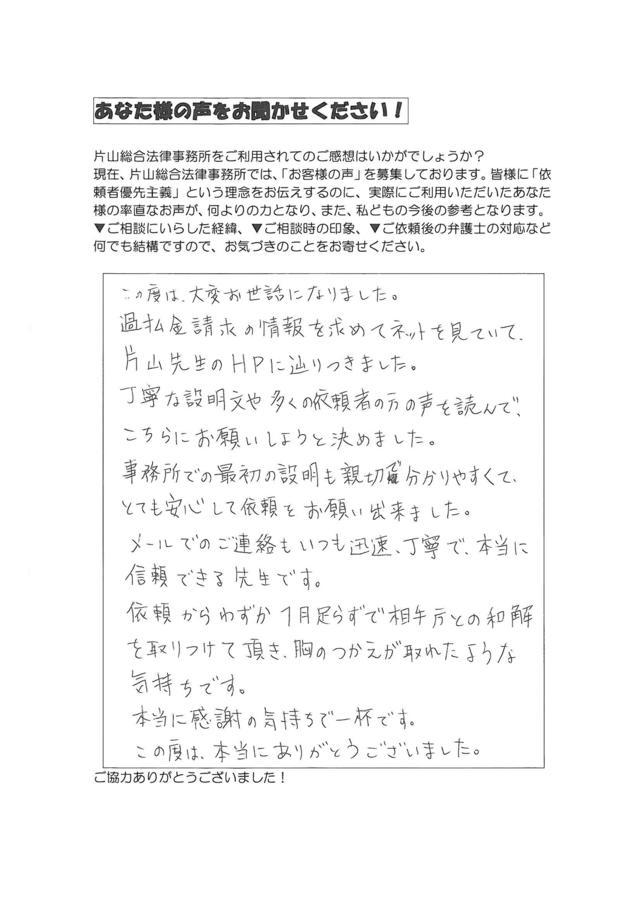 あなた様の声をお聞かせください！
片山総合法律事務所をご利用されてのご感想はいかがでしょうか？
現在、片山総合法律事務所では、「お客様の声」を募集しております。皆様に「依
頼者優先主義」という理念をお伝えするのに、実際にご利用いただいたあなた
様の率直なお声が、何よりの力となり、また、私どもの今後の参考となります。
▼ご相談にいらした経緯、▼ご相談時の印象、▼ご依頼後の弁護士の対応など
何でも結構ですので、お気づきのことをお寄せください。
この度は、大変お世話になりました。
過払金請求の情報を求めてネットを見ていて、
片山先生のHPに辿りつきました。
丁寧な説明文や多くの依頼者の方の声を読んで、
こちらにお願いしようと決めました。
事務所での最初の説明も親切で分かりやすくて、
とても安心して依頼をお願い出来ました。
メールでのご連絡もいつも迅速、丁寧で、本当に
信頼できる先生です。
依頼からわずか1月足らずで相手方との和解
を取りつけて頂き、胸のつかえが取れたような
気持ちです。
本当に感謝の気持ちで一杯です。
この度は、本当にありがとうございました。
ご協力ありがとうございました！